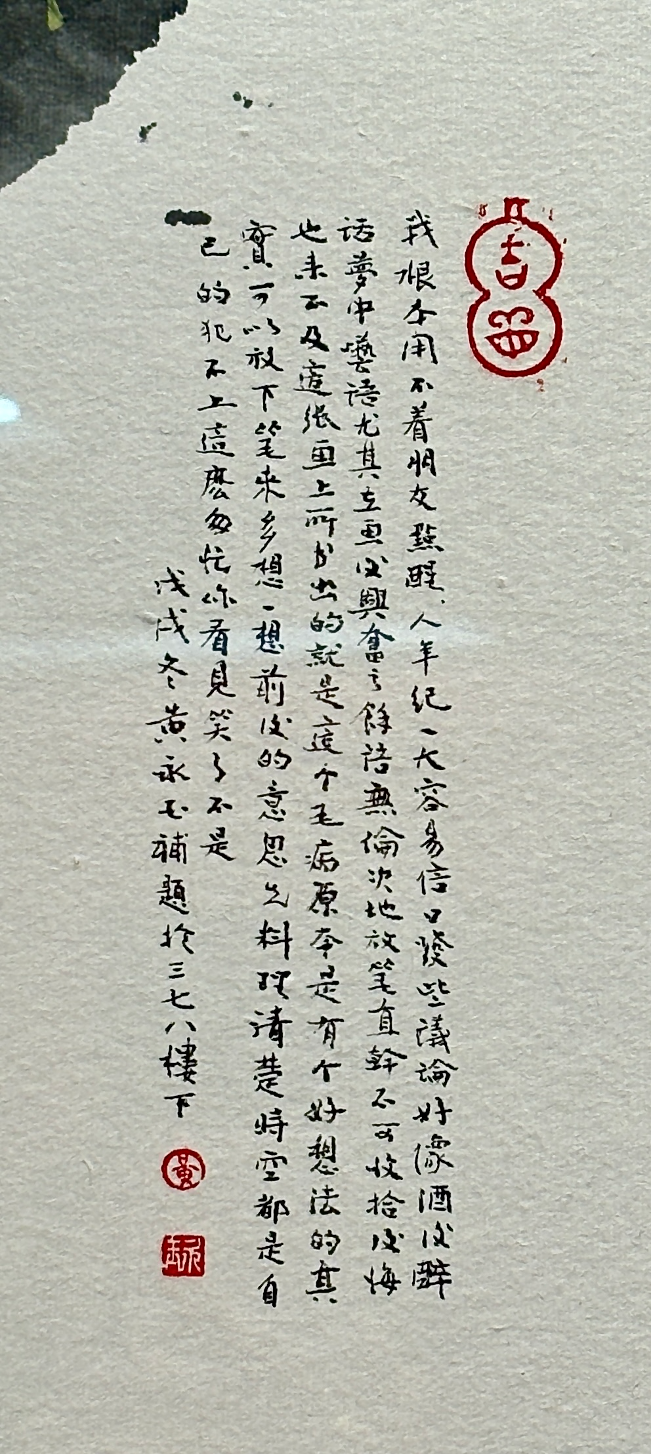 我根本用不着朋友點醒、人年紀一大容易信口發些議論好像酒后醉
話夢中囈語尤其在画后興奮之餘語無倫次地放笔直幹不可收拾后悔
也来不及這張画上所書出的就是這个毛病原本是有个好想法的其
實可以放下笔来多想一想前后的意思先料理清楚時空都是自
己的犯不上這麽匆忙你看見笑了不是
戊戌冬黄永玉補題於三七八樓下
黃